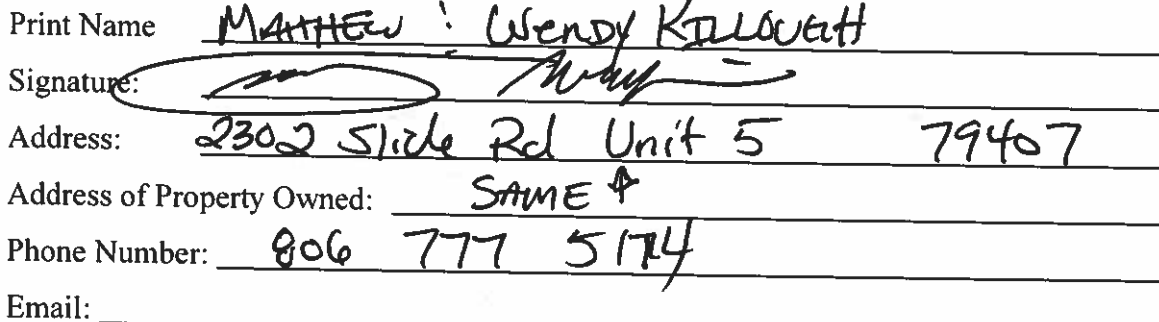 Print Name MATTHEW : Wendy KILLOUGH
Signature:
Address: 2302 Slide Rd Unit 5 79407
Address of Property Owned: SAME ↑
Phone Number: 806 777 5174
Email: